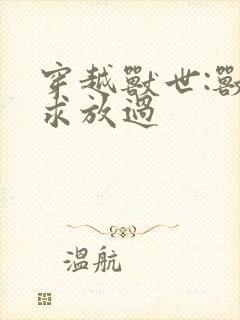 穿越獸世:獸
求放過
溫航